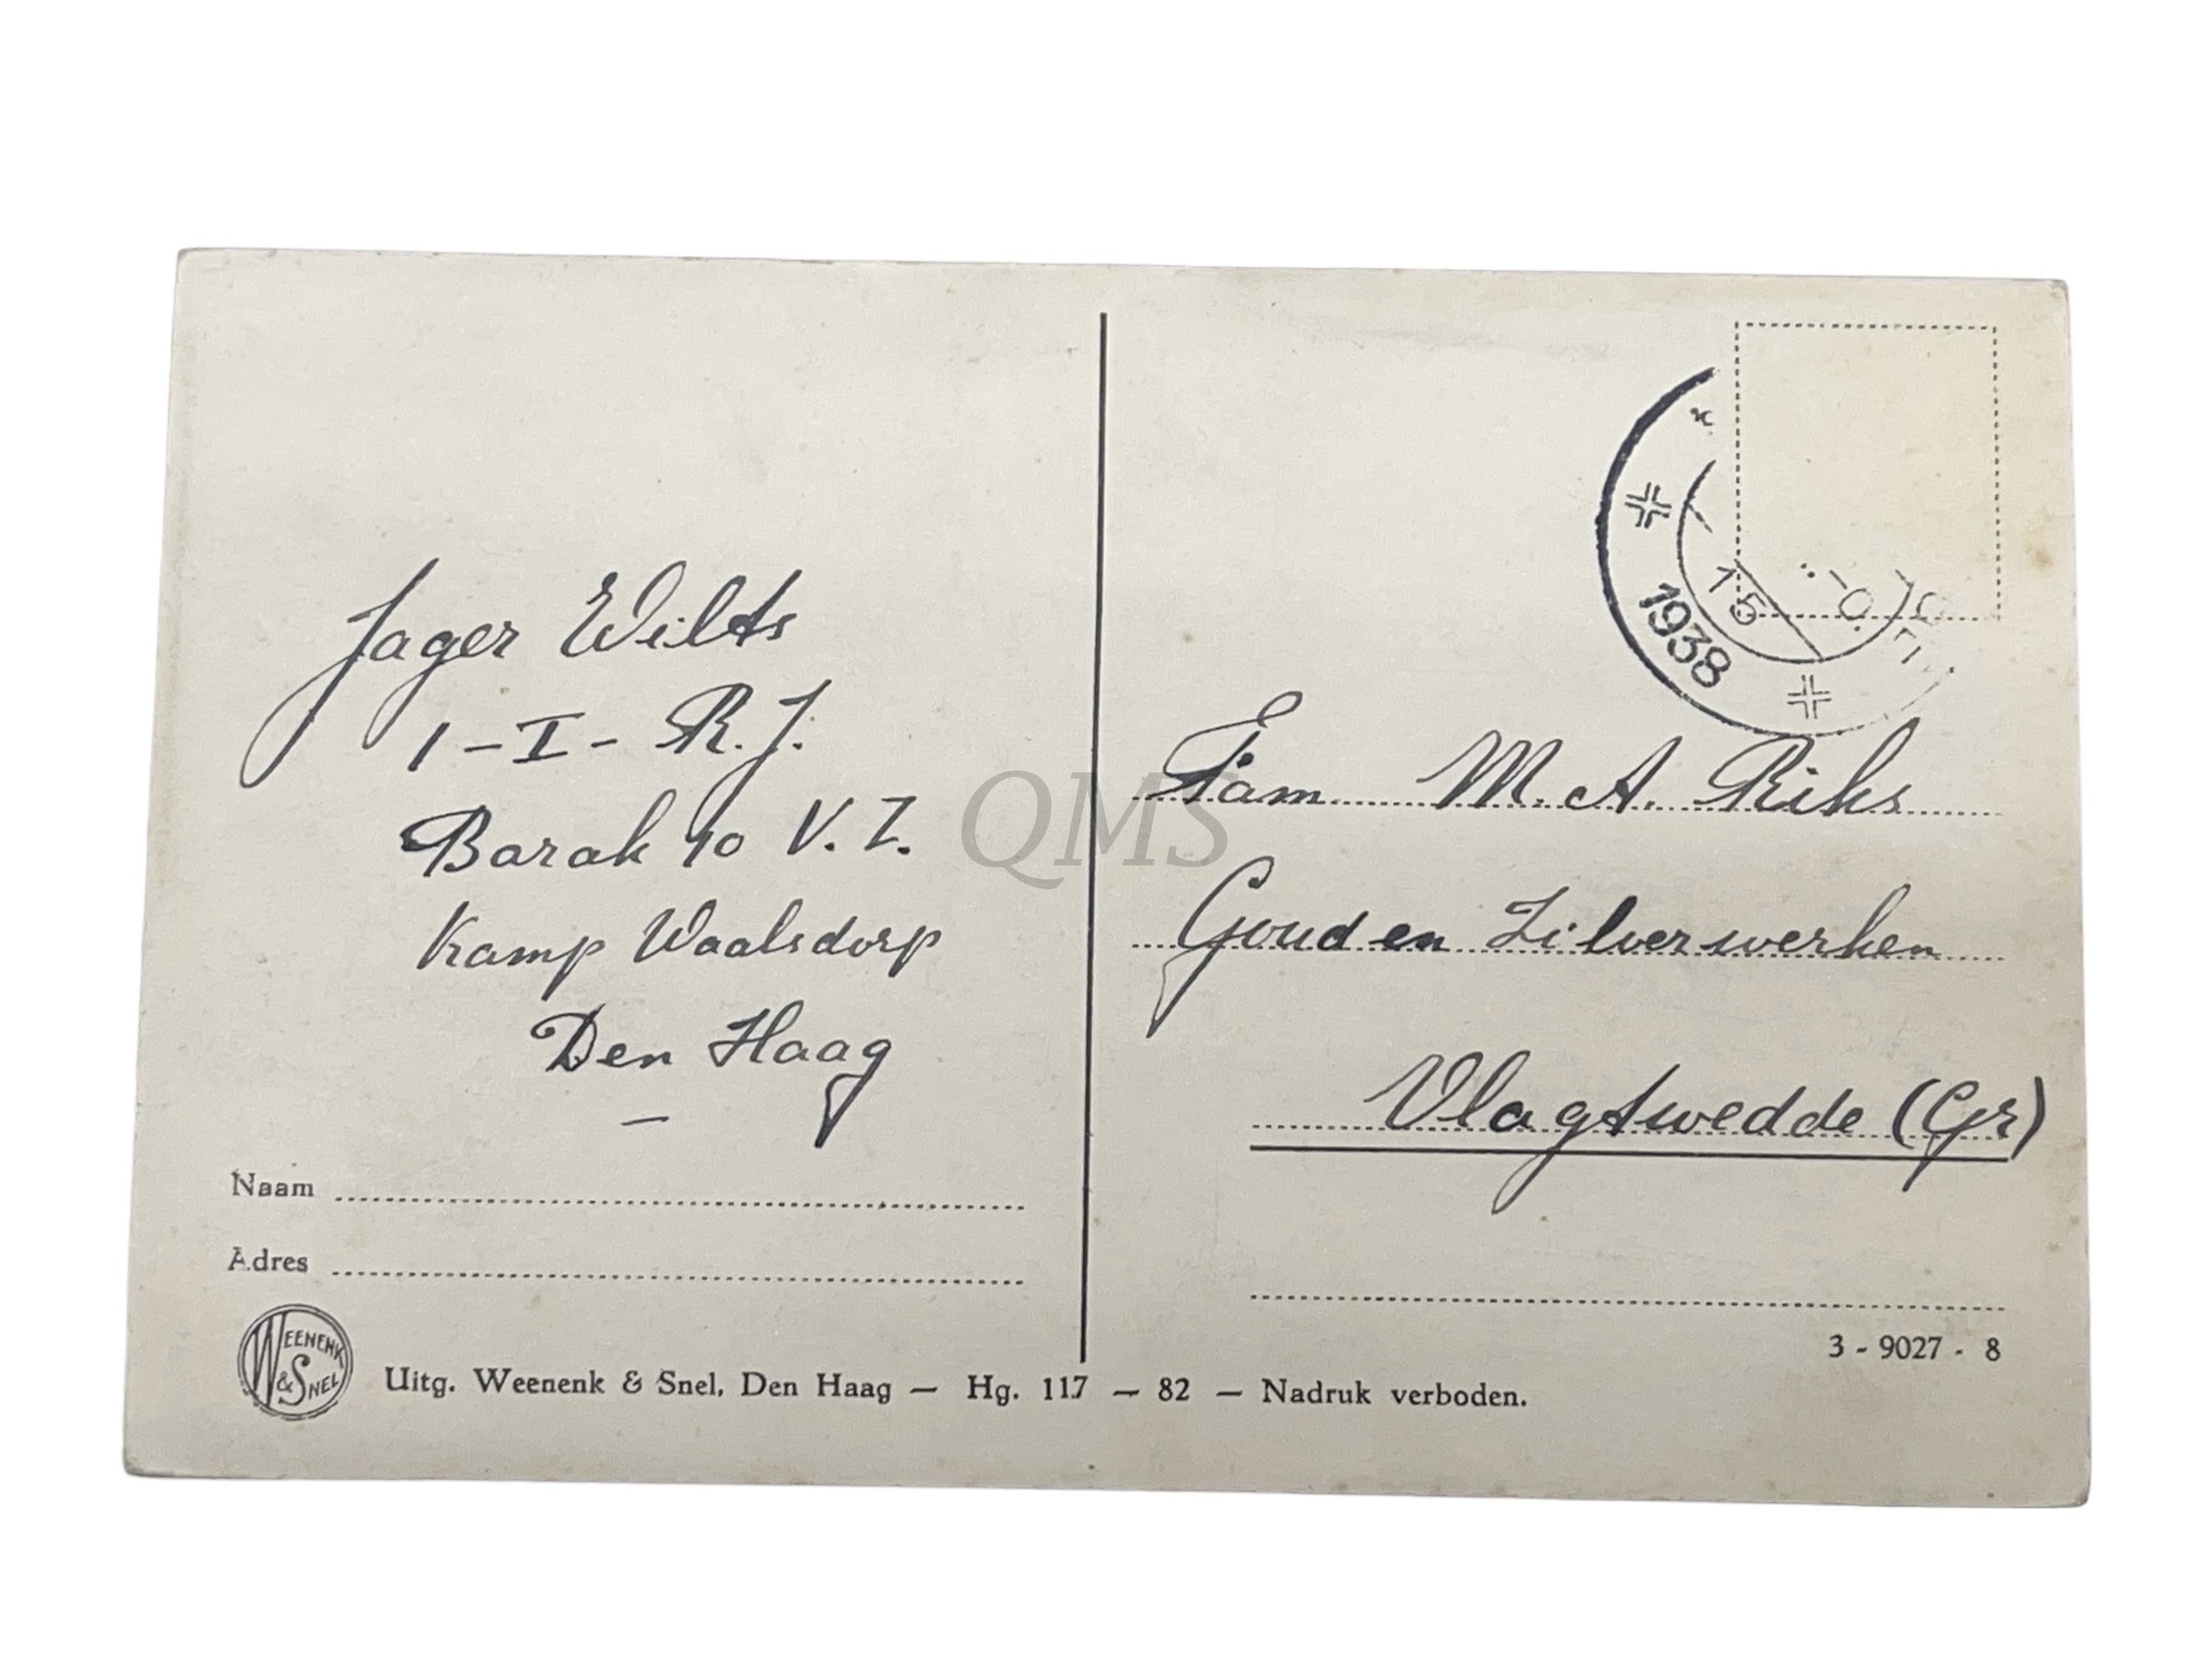 Jager Wilts
1 - I - R. J.
Barak 40 V. Z.
Kamp Waalsdorp
Den Haag
—
Naam
Adres
WEENENK & SNEL
Uitg. Weenenk & Snel, Den Haag — Hg. 117 — 82 — Nadruk verboden.
1938
15
Fam M. A. Riks
Goud en Zilverwerken
Vlagtwedde (Gr)
3 - 9027 - 8
QMS